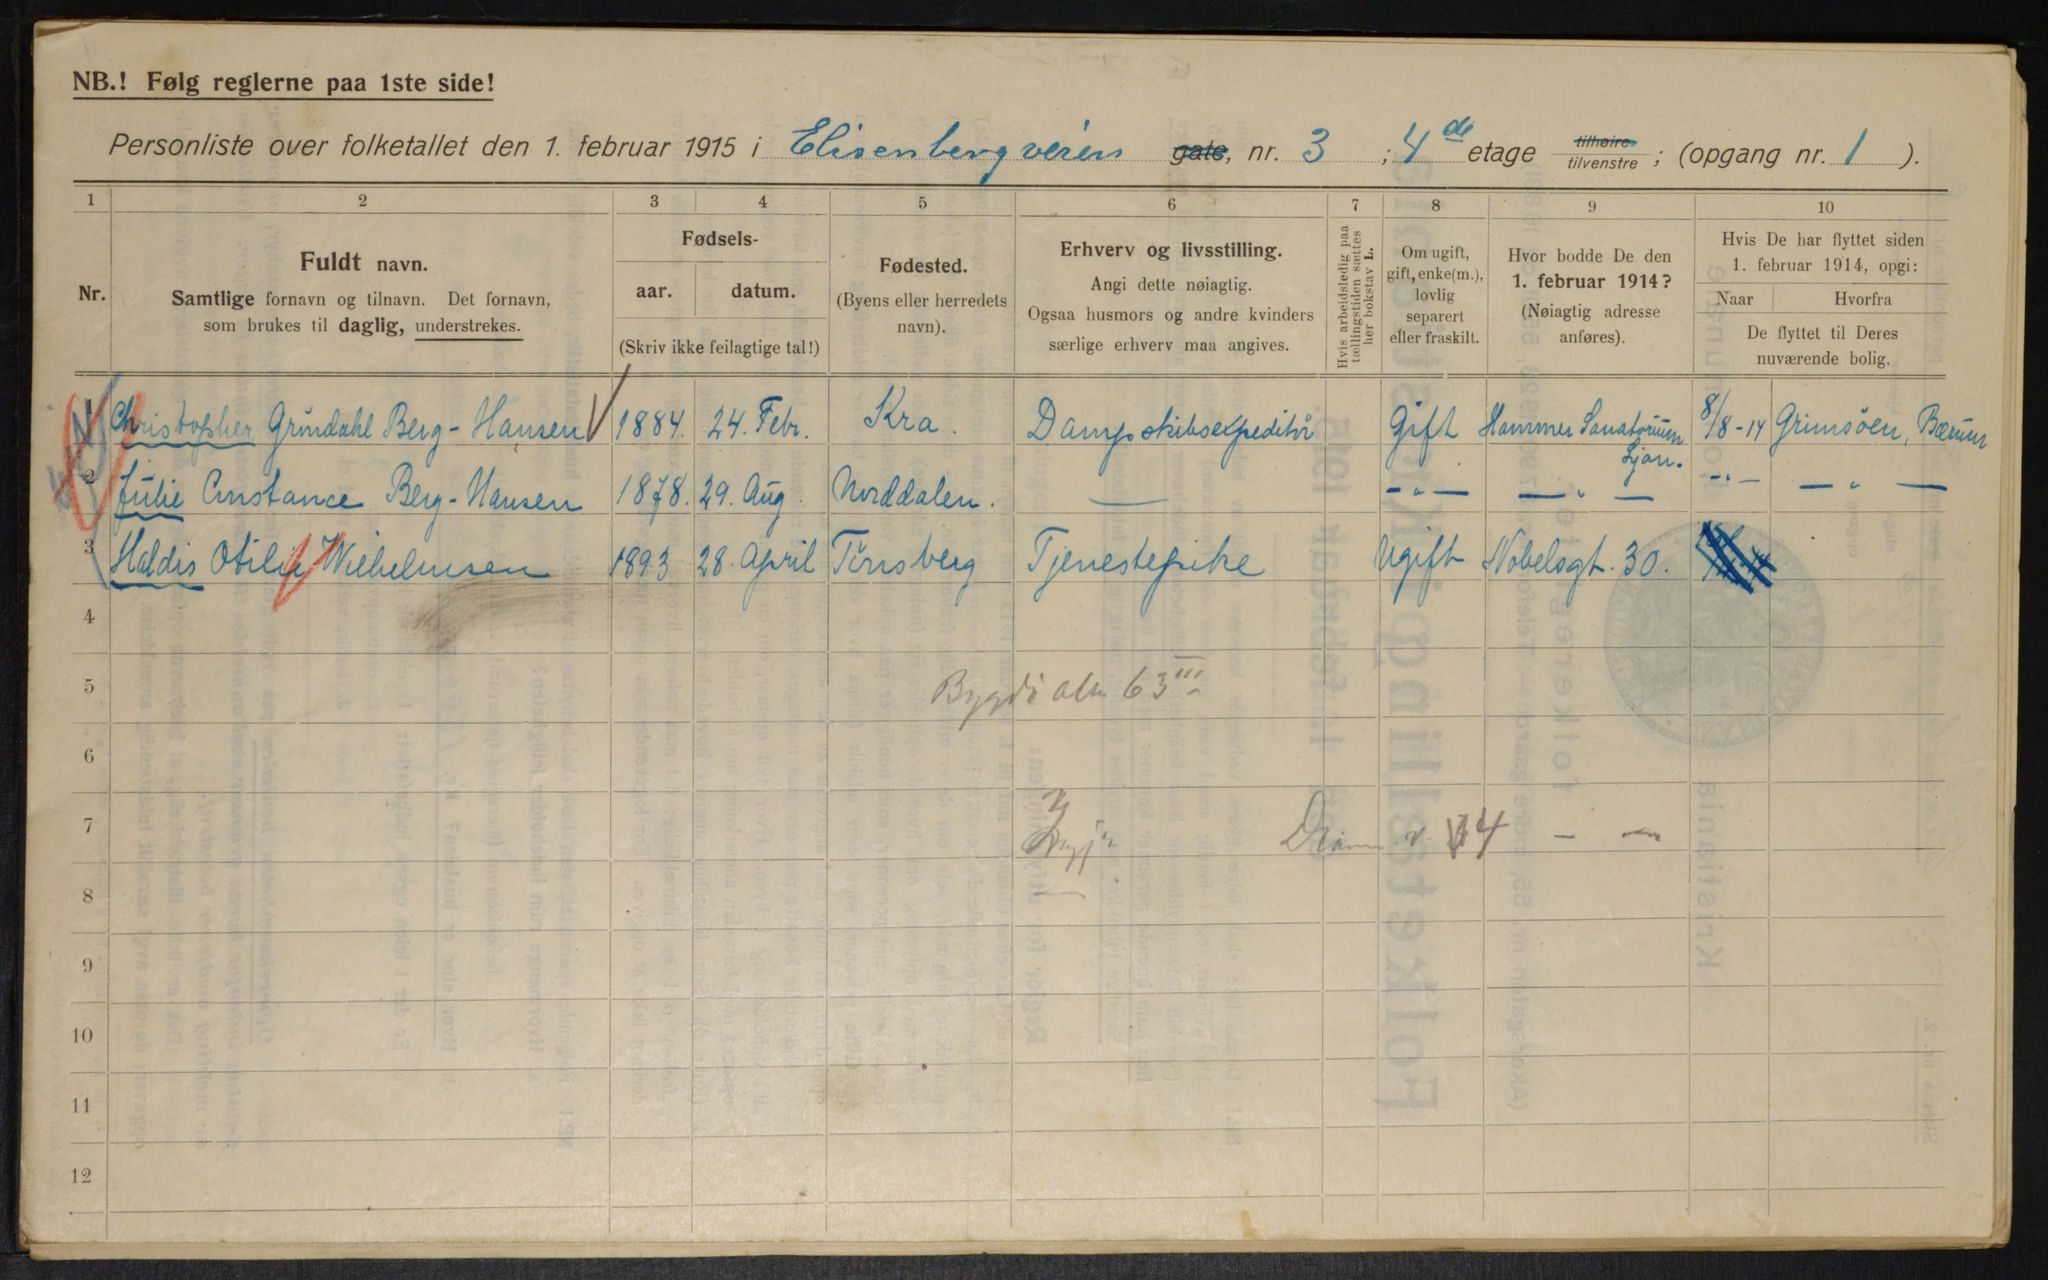 NB.! Følg reglerne paa 1ste side!
Personliste over folketallet den 1. februar 1915 i Elisenbergveien gate, nr. 3 ; 4de etage tilhøire tilvenstre ; (opgang nr. 1 ).
1 2 3 4 5 6 7 8 9 10
Nr.
Fuldt navn.
Samtlige fornavn og tilnavn. Det fornavn,
som brukes til daglig, understrekes.
Fødsels-
aar. datum.
(Skriv ikke feilagtige tal!)
Fødested.
(Byens eller herredets
navn).
Erhverv og livsstilling.
Angi dette nøiagtig.
Ogsaa husmors og andre kvinders
særlige erhverv maa angives.
Hvis arbeidsledig paa
tællingstiden sættes
her bokstav L.
Om ugift,
gift, enke(m.),
lovlig
separert
eller fraskilt.
Hvor bodde De den
1. februar 1914?
(Nøiagtig adresse
anføres).
Hvis De har flyttet siden
1. februar 1914, opgi:
Naar Hvorfra
De flyttet til Deres
nuværende bolig.
1 Christopher Gründahl Berg-Hansen 1884. 24. Febr. Kra. Dampskibsexpeditör Gift Hammer Sanatorium Ljan. 8/8-14 Grimsöen, Bærum
2 Julie Constance Berg-Hansen 1878. 29. Aug. Norddalen. — — " — — " — — " — — " —
3 Haldis Otilie Wilhelmsen 1893 28. April Tönsberg Tjenestepike Ugift Nobelsgt. 30.
4
5 Bygdö alle 63 III
6
7 Dramm v 74 — —
8
9
10
11
12